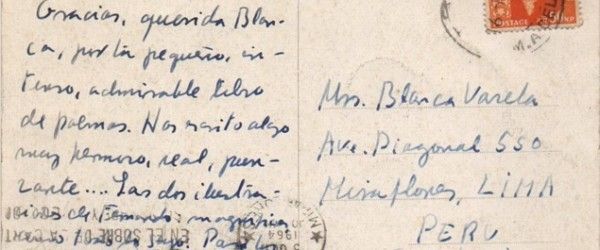 Gracias, querida Blan-
ca, por tu pequeño, in-
tenso, admirable libro
de poemas. Has escrito algo
muy hermoso, real, pun-
zante.... Las dos ilustra-
ciones de Fernando, magníficas
POSTAGE
NP
Mrs. Blanca Varela
Ave. Diagonal 550
Miraflores, LIMA
PERU
1964
EN EL SOBRE